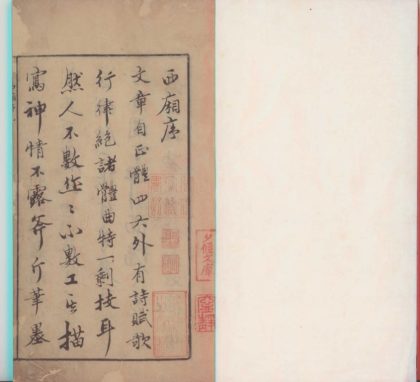 西廂序
文章自正體四六外有詩賦歌
行律絕諸體曲特一剩技耳
然人不數作作不數工其描
寫神情不露斧斤筆墨